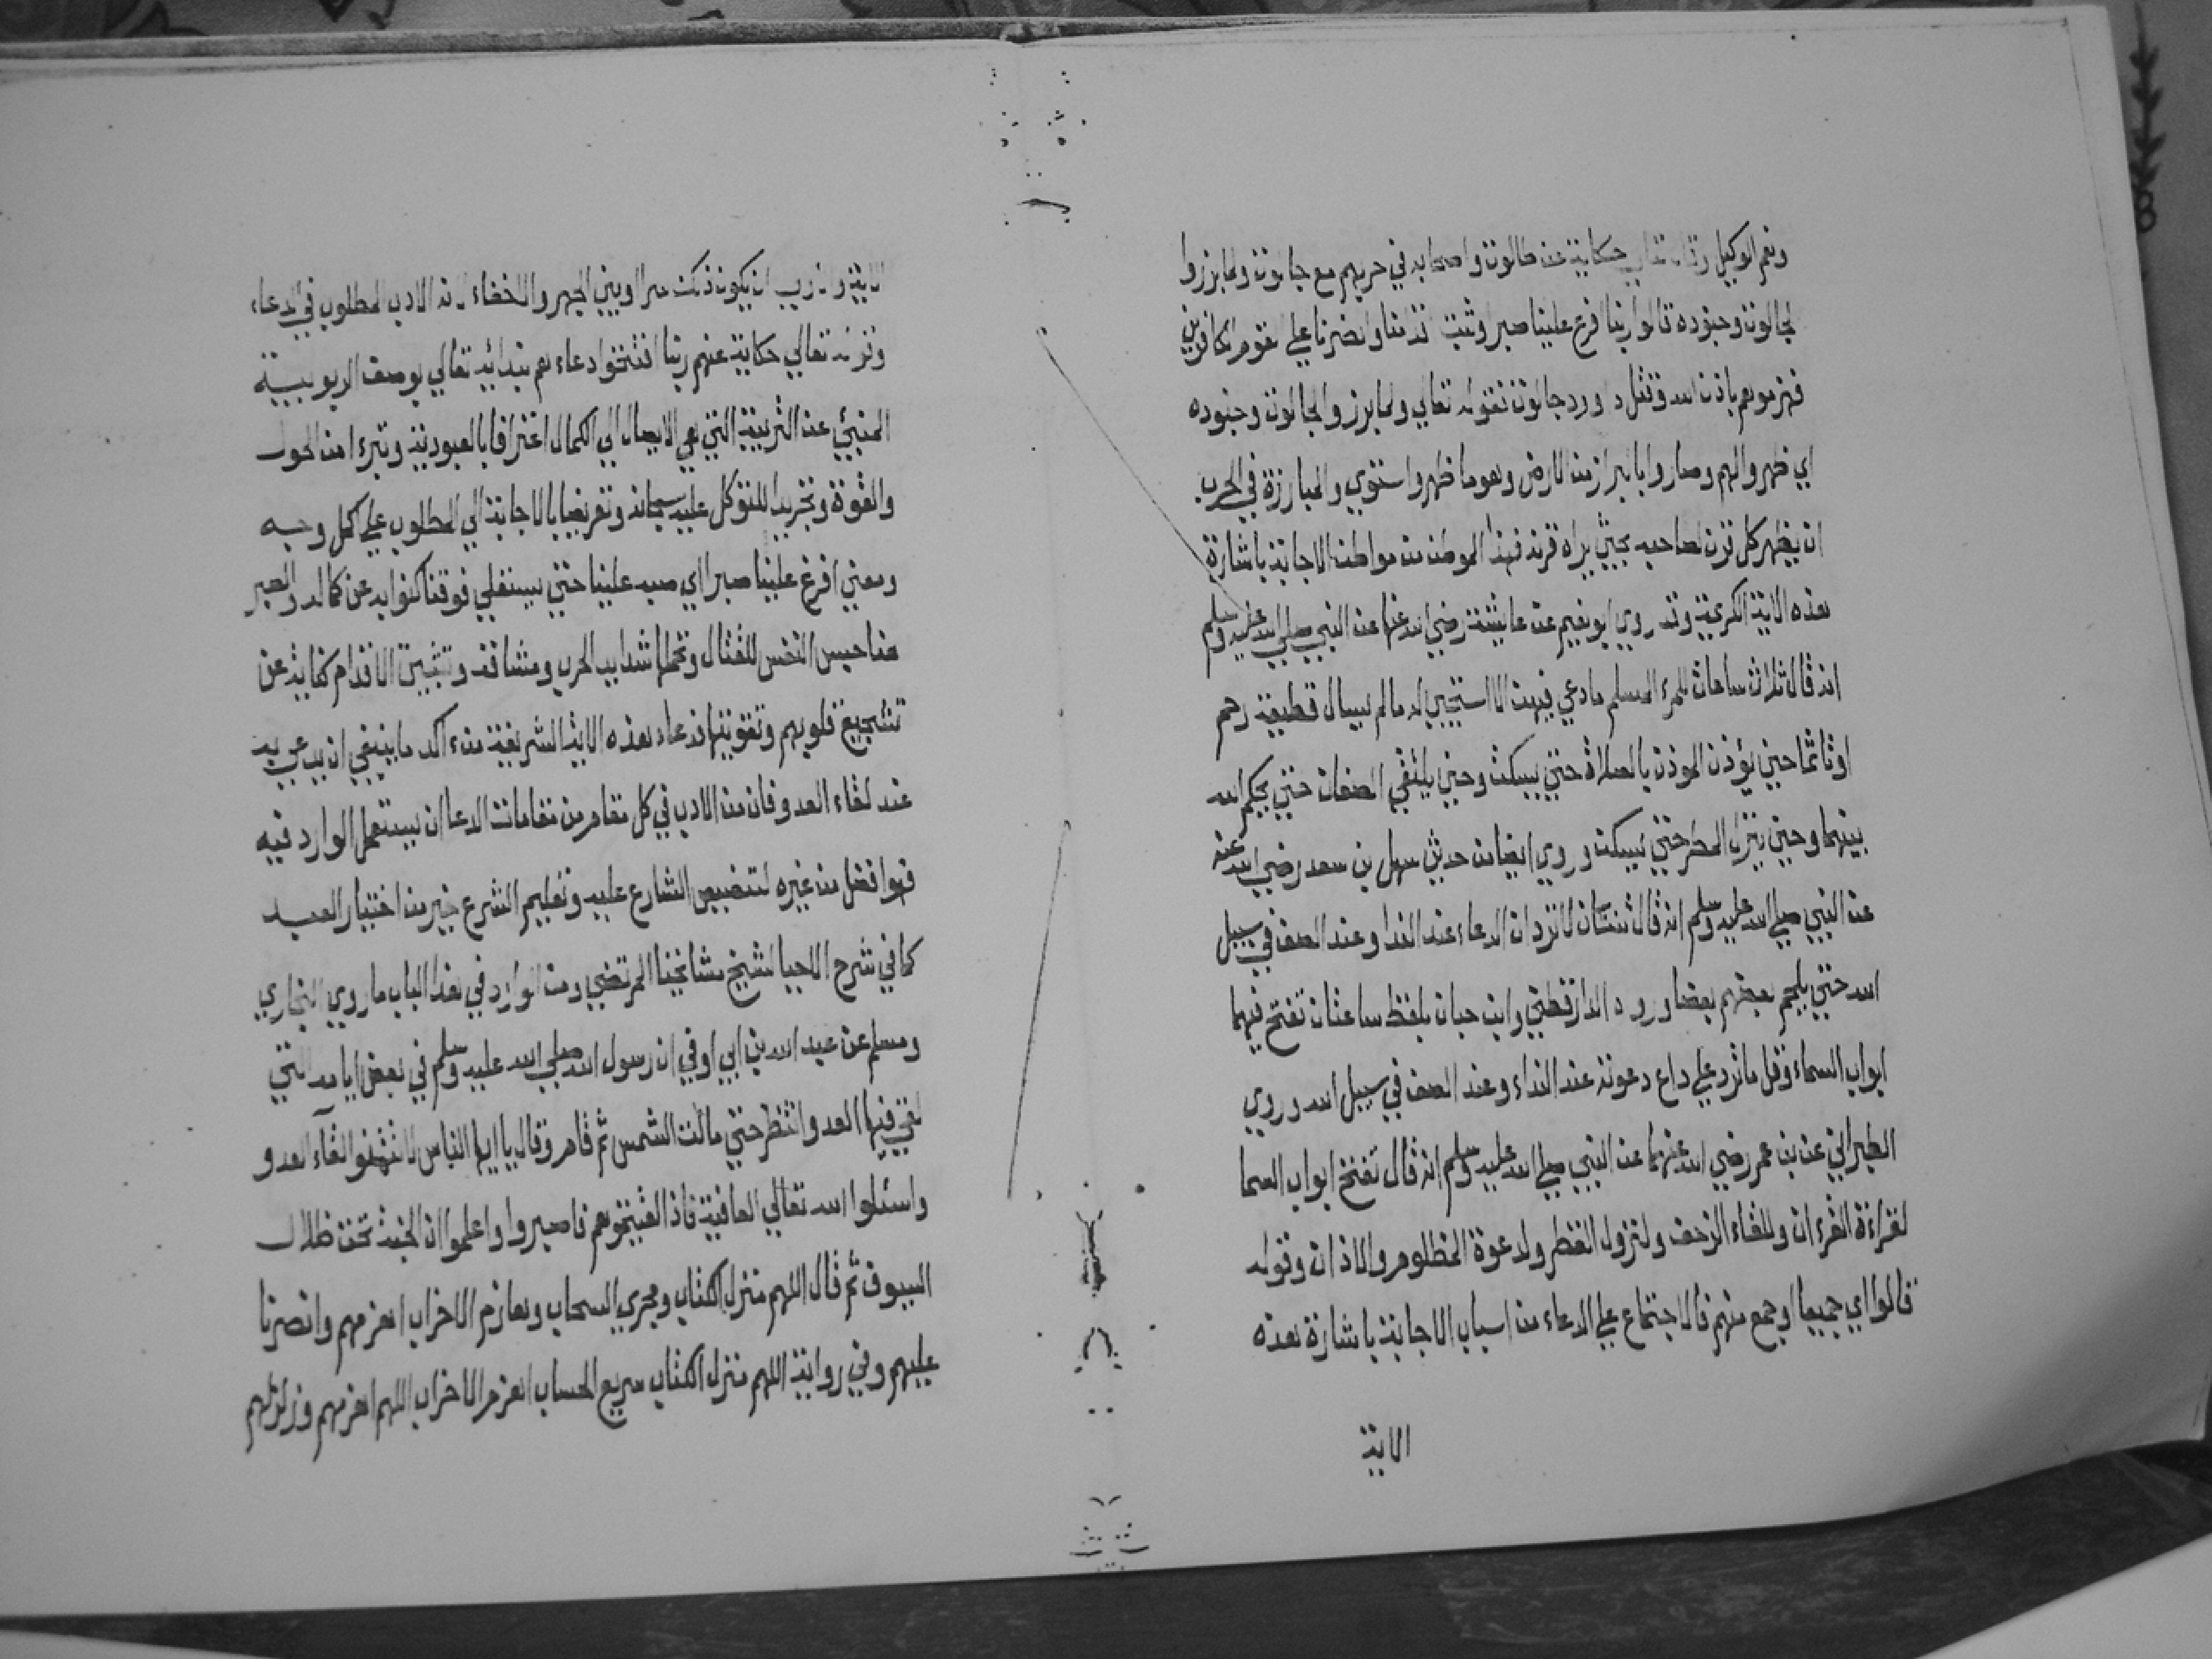 ونعم الوكيل وقال تعالى حكاية عن طالوت واصحابه في حربهم مع جالوت ولما برزوا
لجالوت وجنوده قالوا ربنا افرغ علينا صبرا وثبت اقدامنا وانصرنا علي القوم الكافرين
فهزموهم باذن الله وقتل داوود جالوت فقوله تعالي ولما برزوا لجالوت وجنوده
اي ظهروا لهم وصاروا بالبراز من الارض وهو ما ظهر واستوي والمبارزة في الحرب
ان يظهر كل قرن لصاحبه بحيث يراه قرنه فهذا الموطن من مواطن الاجابة باشارة
هذه الاية الكريمة وقد روي ابو نعيم عن عايشة رضي الله عنها عن النبي صلي الله عليه وسلم
انه قال ثلاث ساعات للمرء المسلم ما دعي فيهن الا استجيب له ما لم يسال قطيعة رحم
او ماثما حين يؤذن الموذن بالصلاة حتي يسكت وحين يلتقي الصفان حتي يحكم الله
بينهما وحين ينزل المطر حتي يسكت وروي ايضا من حديث سهل بن سعد رضي الله عنه
عن النبي صلي الله عليه وسلم انه قال ثنتان لا تردان الدعاء عند الندا وعند الصف في سبيل
الله حتي يلجم بعضهم بعضا ورواه الدارقطني وابن حبان بلفظ ساعتان تفتح فيهما
ابواب السماء وقل ما ترد علي داع دعوته عند النداء وعند الصف في سبيل الله وروي
الطبراني عن بن عمر رضي الله عنهما عن النبي صلي الله عليه وسلم انه قال تفتح ابواب السما
لقراءة القرءان وللقاء الزحف ولنزول القطر ولدعوة المظلوم والاذان وقوله
قالوا اي جميعا او جمع منهم فالاجتماع علي الدعاء من اسباب الاجابة باشارة هذه
الاية
الاية والارب ان يكون ذلك سرا وبين الجهر والاخفاء لانه الادب المطلوب في الدعاء
وقوله تعالي حكاية عنهم ربنا افتتحوا دعاءهم بندائه تعالي بوصف الربوبية
المنبئي عن التربية التي هي الايصال الي الكمال اعترافا بالعبودية وتبرءا من الحول
والقوة وتجريدا للتوكل عليه سبحانه وتعريضا بالاجابة الي المطلوب علي كل وجه
ومعني افرغ علينا صبرا اي صبه علينا حتي يستعلي فوقنا كنوا به عن كماله والصبر
هنا حبس النفس للقتال وتحملها شدايد الحرب ومشاقه وتثبيت الاقدام كناية عن
تشجيع قلوبهم وتقويتها فدعاء هذه الاية الشريفة من ءاكد ما ينبغي ان يدعي به
عند لقاء العدو فان من الادب في كل مقام من مقامات الدعا ان يستعمل الوارد فيه
فهو افضل من غيره لتنصيص الشارع عليه وتعليم الشرع خير من اختيار العبد
كما في شرح الاحيا لشيخ مشايخنا المرتضي ومن الوارد في هذا الباب ما روي البخاري
ومسلم عن عبد الله بن ابي اوفي ان رسول الله صلي الله عليه وسلم في بعض ايامه التي
لقي فيها العدو انتظر حتي مالت الشمس ثم قام وقال يا ايها الناس لا تتمنوا لقآء العدو
واسئلوا الله تعالي العافية فاذا لقيتموهم فاصبروا واعلموا ان الجنة تحت ظلال
السيوف ثم قال اللهم منزل الكتاب ومجري السحاب وهازم الاحزاب اهزمهم وانصرنا
عليهم وفي رواية اللهم منزل الكتاب سريع الحساب اهزم الاحزاب اللهم اهزمهم وزلزلهم